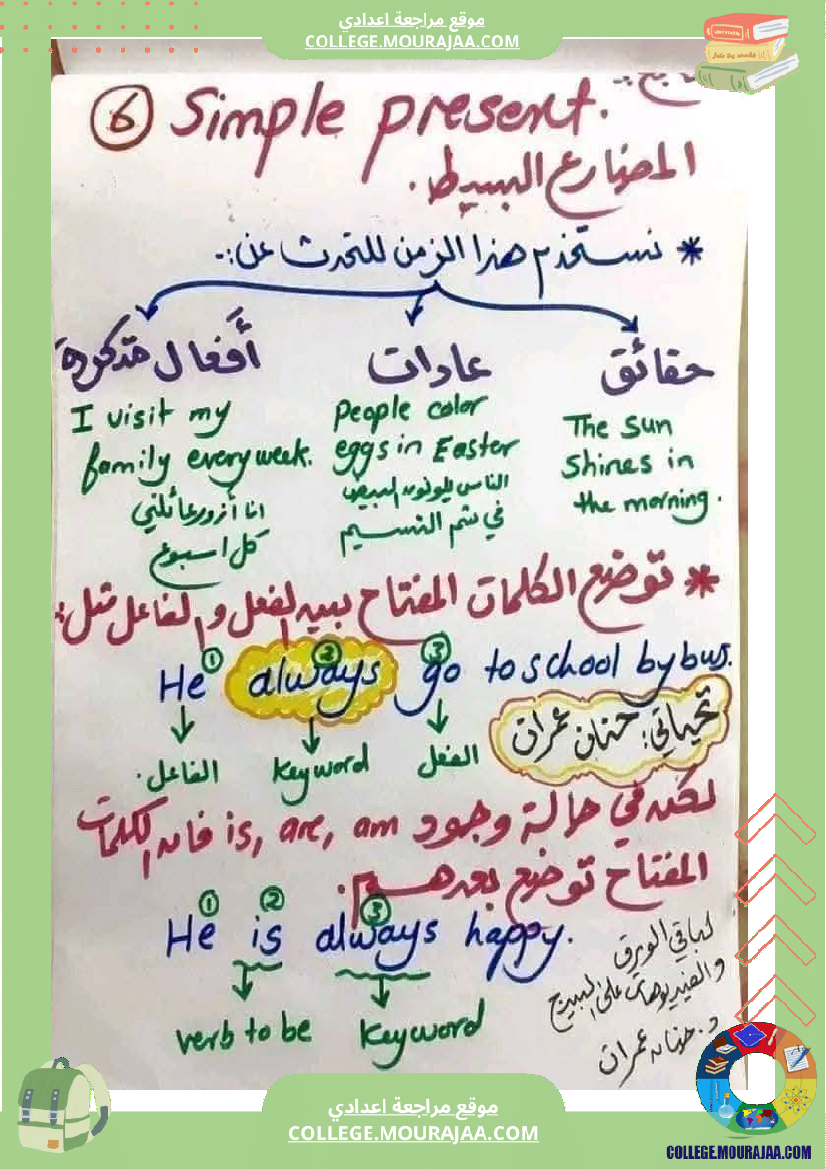 موقع مراجعة اعدادي
COLLEGE.MOURAJAA.COM
6 Simple present.
المضارع البسيط.
* نستخدم هذا الزمن للتحدث عن:-
حقائق
عادات
أفعال متكررة
The sun
shines in
the morning.
People color
eggs in Easter
الناس يلونون البيض
في شم النسيم
I visit my
family every week.
انا أزور عائلتي
كل اسبوع
* توضع الكلمات المفتاح بين الفعل والفاعل مثل:
1 2 3
He always go to school by bus.
الفاعل.
keyword
الفعل
تحياتي: حنان عمران
لكن في حالة وجود is, are, am فان الكلمات
المفتاح توضع بعدهم.
1 2 3
He is always happy.
verb to be
keyword
لباقي الورق
والفيديوهات على البيدج
د. حنان عمران
موقع مراجعة اعدادي
COLLEGE.MOURAJAA.COM
COLLEGE.MOURAJAA.COM